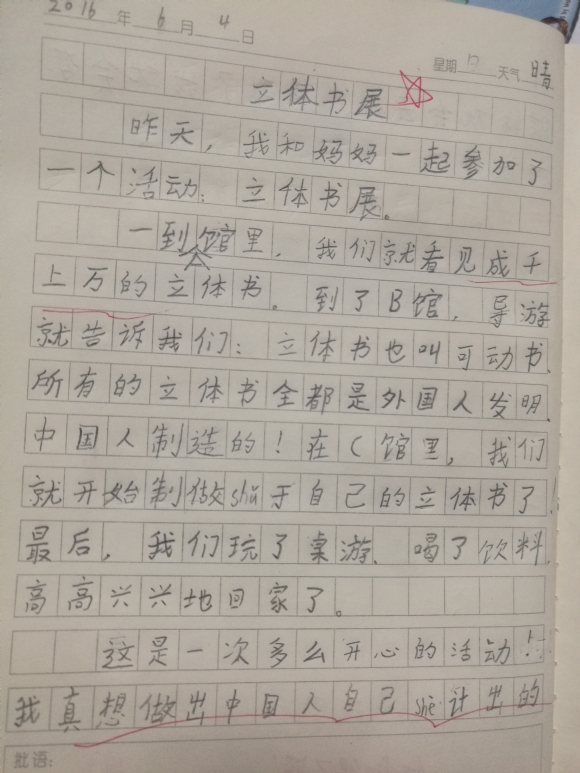 2016年6月4日
星期六 天气 晴
立体书展
昨天，我和妈妈一起参加了
一个活动：立体书展。
一到A馆里，我们就看见成千
上万的立体书。到了B馆，导游
就告诉我们：立体书也叫可动书、
所有的立体书全都是外国人发明、
中国人制造的！在C馆里，我们
就开始制做shǔ于自己的立体书了！
最后，我们玩了桌游、喝了饮料，
高高兴兴地回家了。
这是一次多么开心的活动！
我真想做出中国人自己shè计出的
批语: